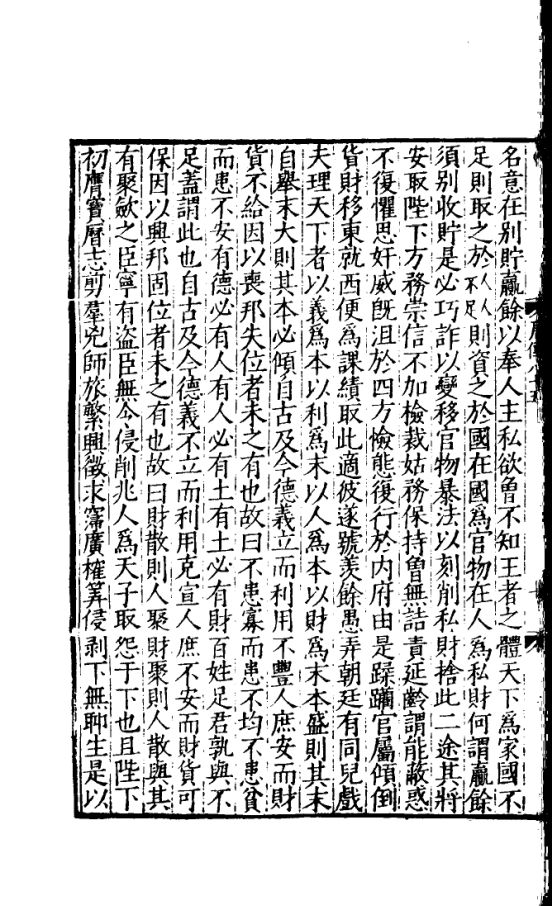 名意在別貯羸餘以奉人主私欲曾不知王者之體天下爲家國不
足則取之於人人不足則資之於國在國爲官物在人爲私財何謂羸餘
須別收貯是必巧詐以變移官物暴法以刻削私財捨此二途其將
安取陛下方務崇信不加檢裁姑務保持曾無詰責延齡謂能蔽惑
不復懼思奸威旣沮於四方憸態復行於內府由是蹂躪官屬傾倒
貨財移東就西便爲課績取此適彼遂號羡餘愚弄朝廷有同兒戲
夫理天下者以義爲本以利爲末以人爲本以財爲末本盛則其末
自舉末大則其本必傾自古及今德義立而利用不豐人庶安而財
貨不給因以喪邦失位者未之有也故曰不患寡而患不均不患貧
而患不安有德必有人有人必有土有土必有財百姓足君孰與不
足蓋謂此也自古及今德義不立而利用克宣人庶不安而財貨可
保因以興邦固位者未之有也故曰財散則人聚財聚則人散與其
有聚斂之臣寧有盜臣無令侵削兆人爲天子取怨于下也且陛下
初膺寶曆志剪羣兇師旅繁興徵求寖廣榷筭侵剥下無聊生是以